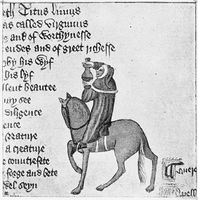 eth Titus Liuius
as called Virginius
and of worthynesse
endes and of greet richesse
by his wyf
his lyf
llent beautee
may see
diligence
ence
Nature
a creature
countrefete
forge and bete
wel seyn